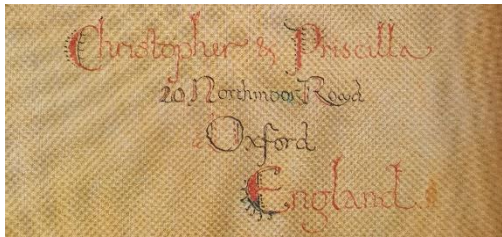 Christopher & Priscilla
20 Northmoor Road
Oxford
England